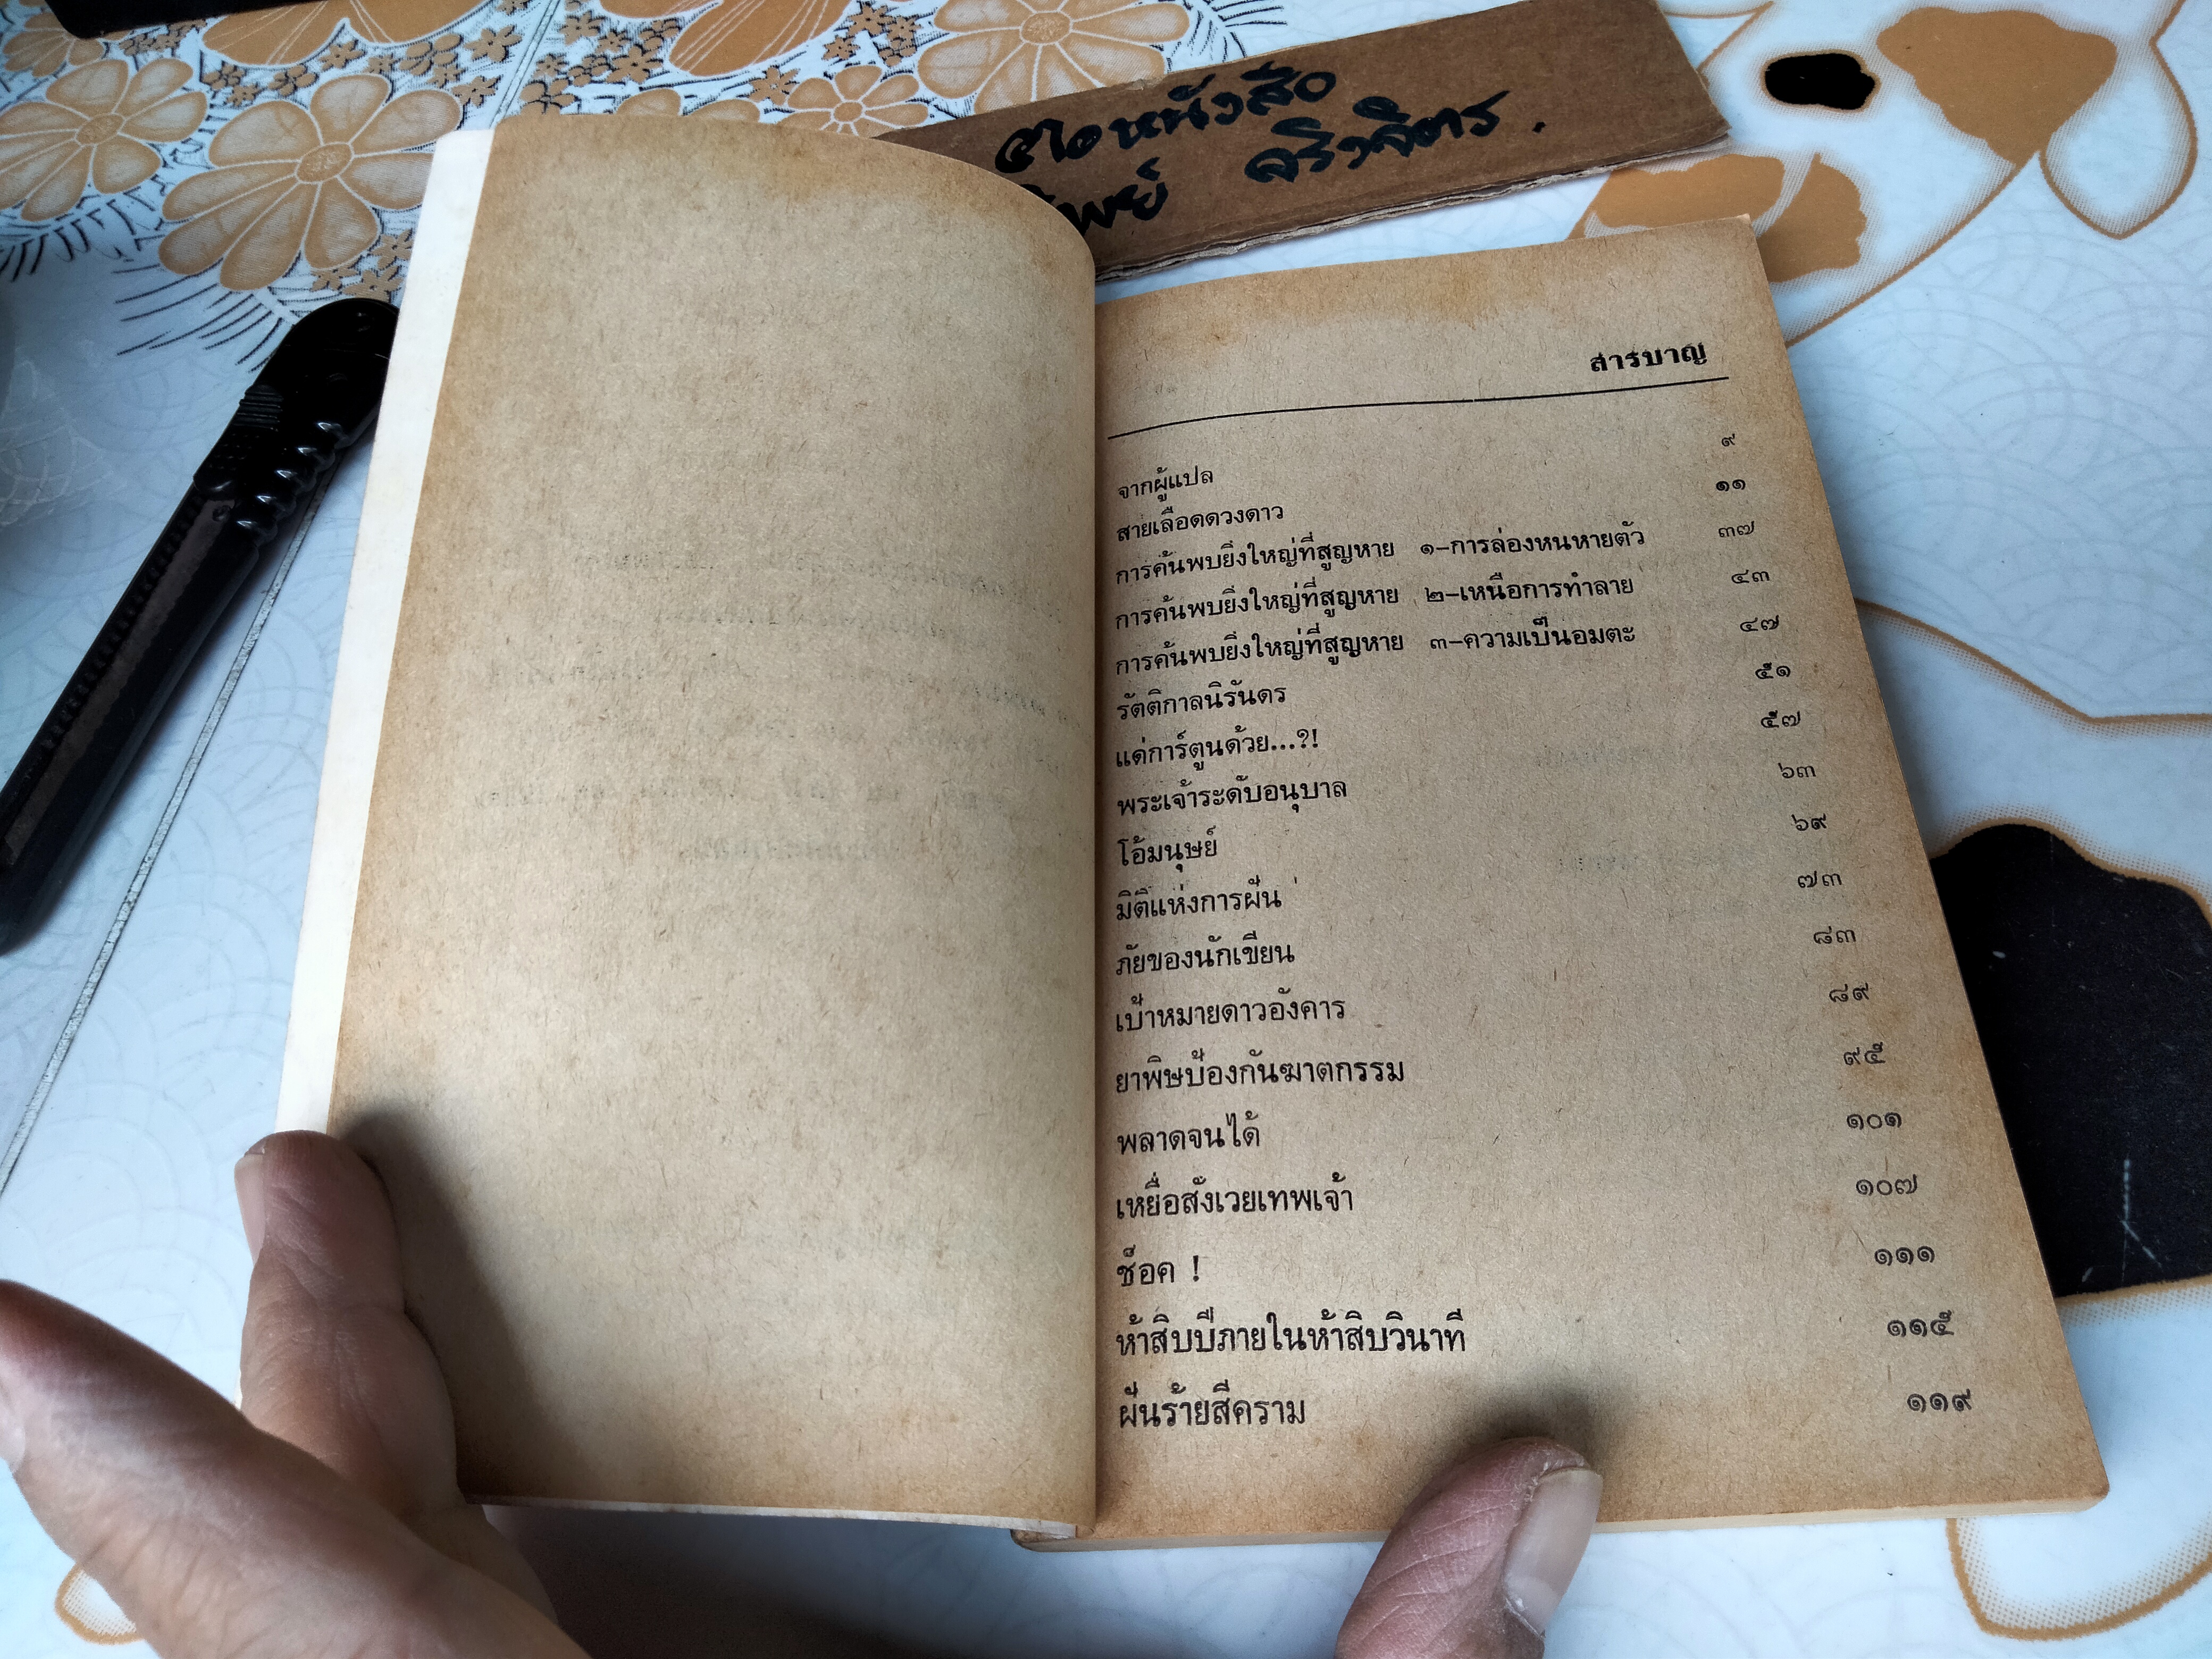 หนังสือ
จริงจิตร .
สารบาญ
จากผู้แปล ๙
สายเลือดดวงดาว ๑๑
การค้นพบยิ่งใหญ่ที่สูญหาย ๑–การล่องหนหายตัว ๓๗
การค้นพบยิ่งใหญ่ที่สูญหาย ๒–เหนือการทำลาย ๔๓
การค้นพบยิ่งใหญ่ที่สูญหาย ๓–ความเป็นอมตะ ๔๗
รัตติกาลนิรันดร ๕๑
แด่การ์ตูนด้วย...?! ๕๗
พระเจ้าระดับอนุบาล ๖๓
โอ้มนุษย์ ๖๙
มิติแห่งการฝัน ๗๓
ภัยของนักเขียน ๘๓
เป้าหมายดาวอังคาร ๘๙
ยาพิษป้องกันฆาตกรรม ๙๕
พลาดจนได้ ๑๐๑
เหยื่อสังเวยเทพเจ้า ๑๐๗
ช็อค ! ๑๑๑
ห้าสิบปีภายในห้าสิบวินาที ๑๑๕
ฝันร้ายสีคราม ๑๑๙